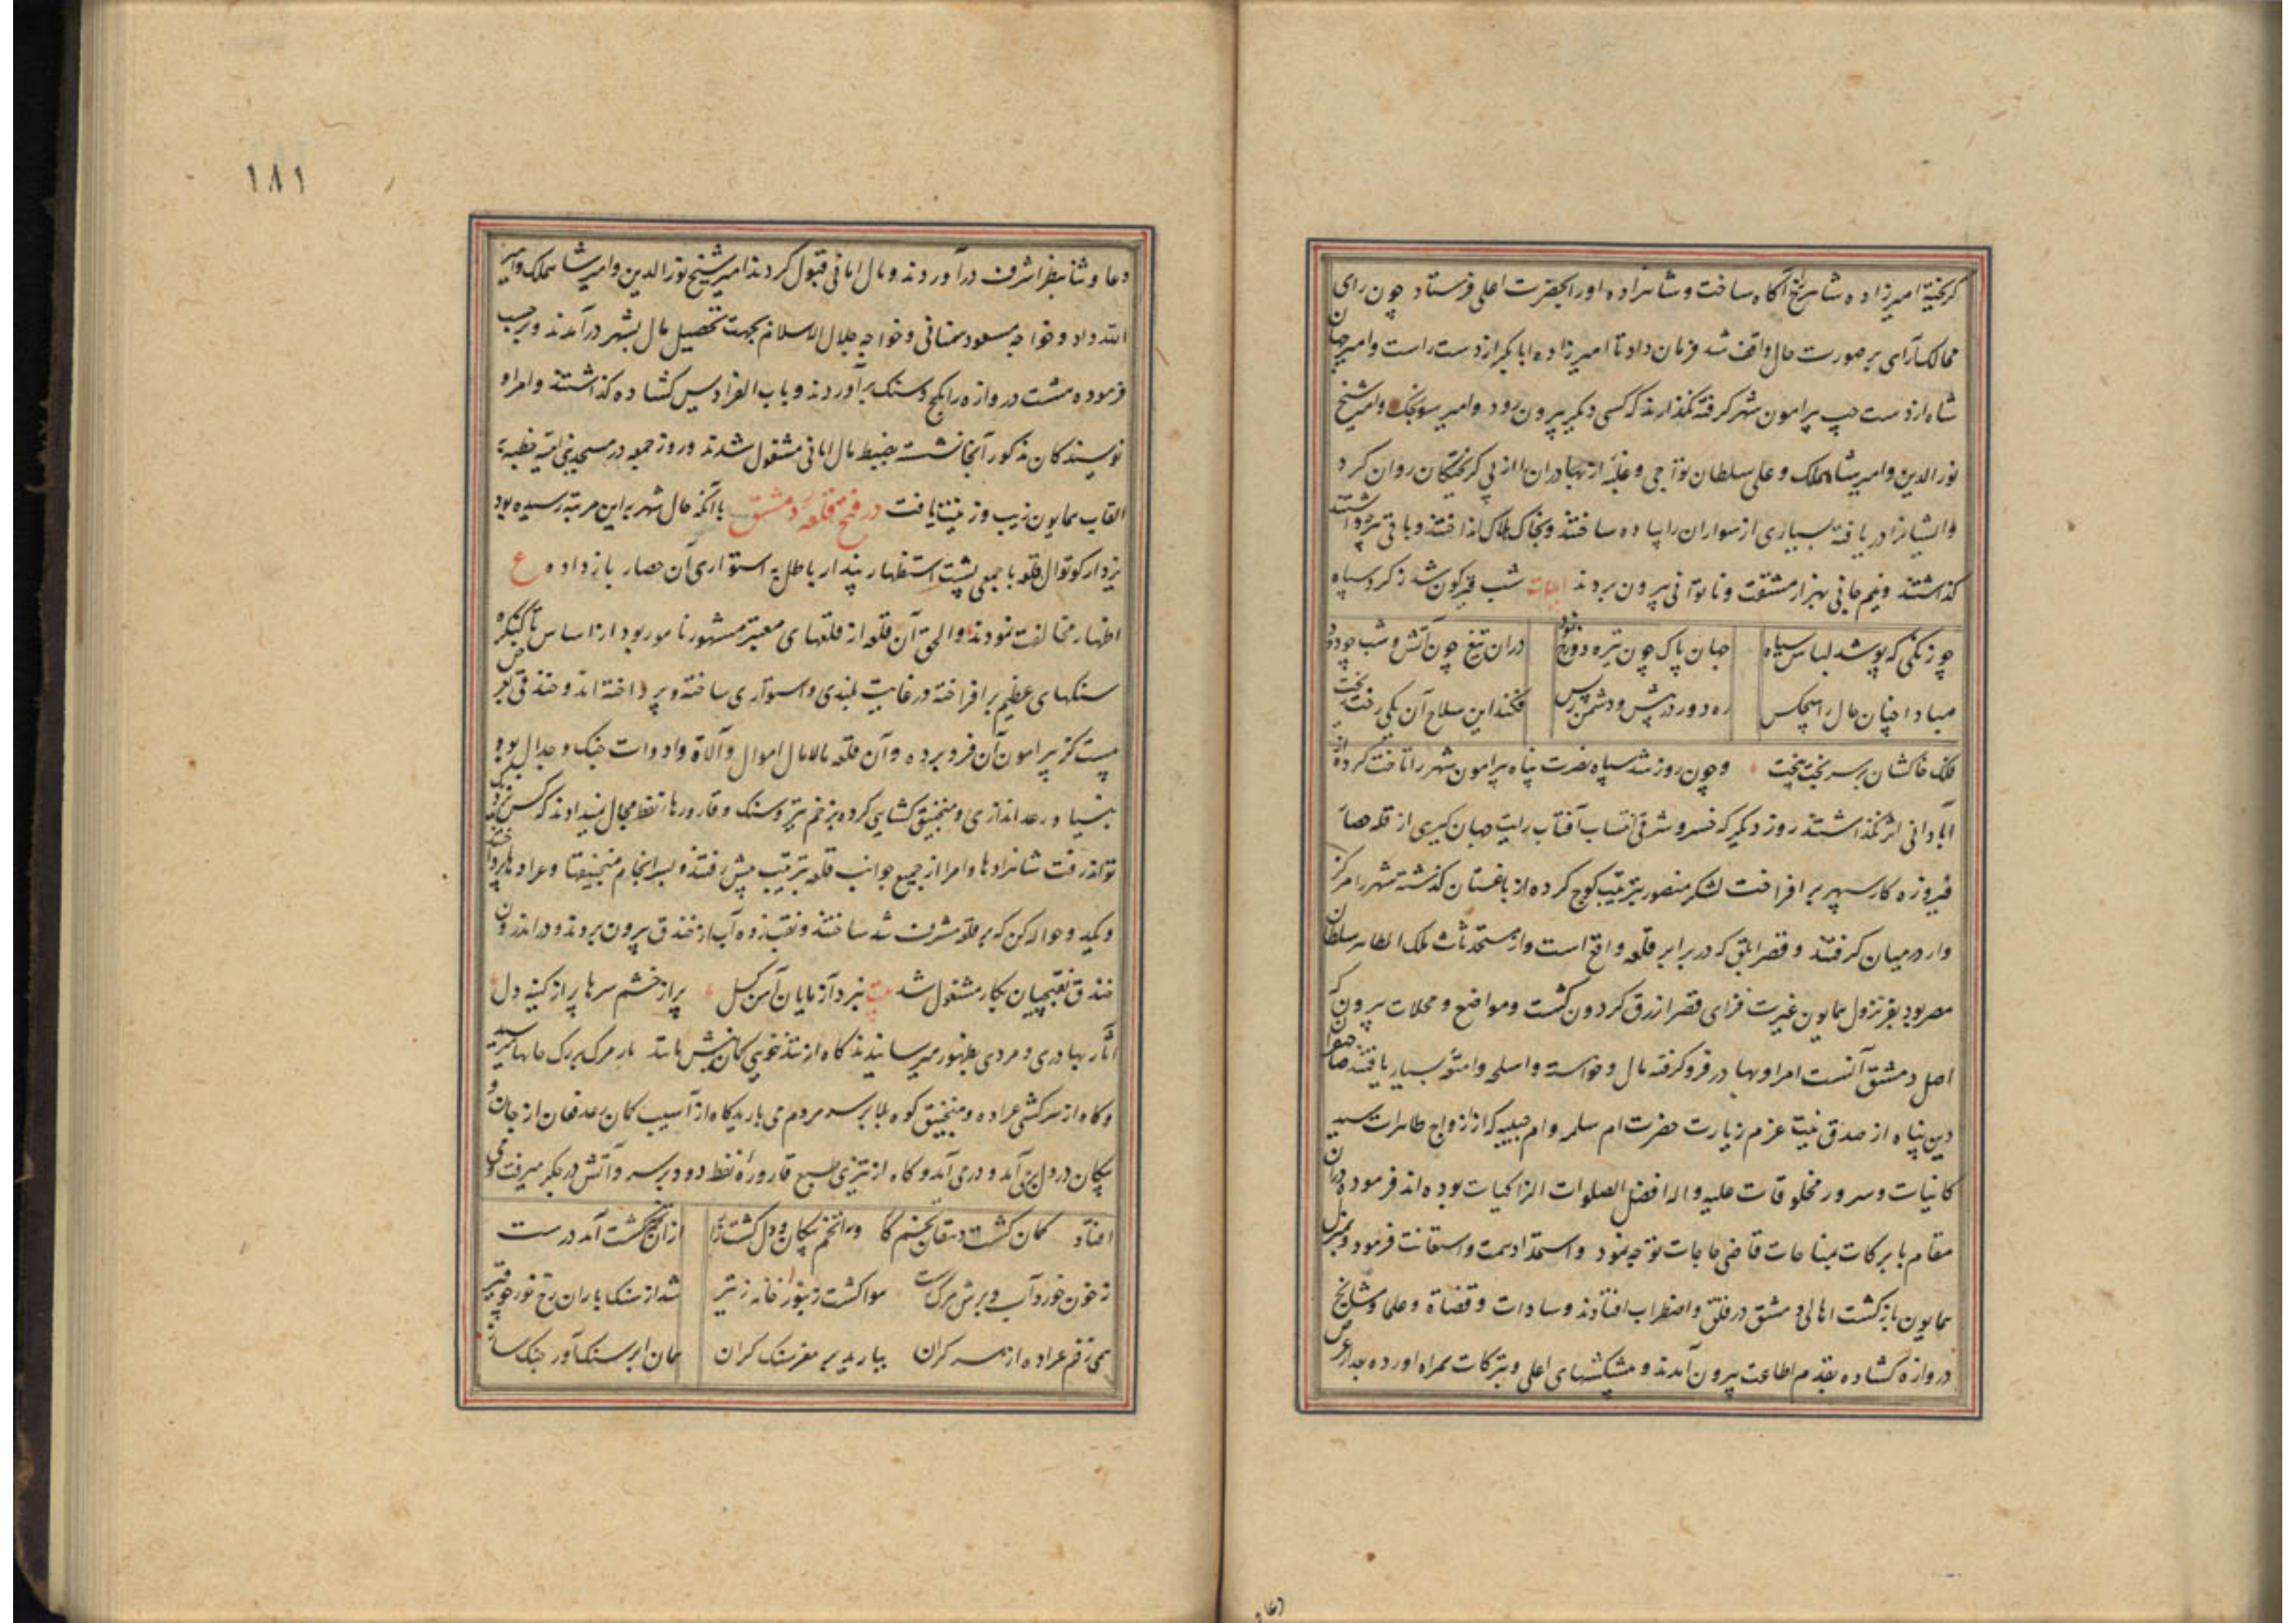 گریخته امیرزاده شاهرخ آگاه ساخت و شاهزاده او را بحضرت اعلی فرستاد چون رای
ممالک‌آرای بر صورت حال واقف شد فرمان داد تا امیرزاده ابابکر از دست راست و امیر جهان
شاه از دست چپ پیرامون شهر گرفته نگذارند که کسی دیگر بیرون رود و امیر سونجک و امیر شیخ
نورالدین و امیر شاهملک و علی سلطان تواجی و غلبه از بهادران را از پی گریختگان روان کرد
و ایشانرا دریافته بسیاری از سواران را پیاده ساختند و بخاک هلاک انداختند و باقی هرچه داشتند
گذاشتند و نیم جانی بهزار مشقت و ناتوانی بیرون بردند ابیات شب قیرگون شد ز کرد سپاه
چو زنگی که پوشد لباس سیاه جهان پاک چون تیره دوزخ نمود دران تیغ چون آتش و شب چو دود
مبادا چنان حال را هیچکس ره دور در پیش و دشمن ز پس فکند این سلاح آن یکی رخت بخت
فلک خاکشان بر سر بخت بیخت و چون روز شد سپاه نصرت پناه پیرامون شهر را تاخت کرده از
آبادانی اثر نگذاشتند روز دیگر که خسرو شرقی انتساب آفتاب رایت جهان گیری از قله حصار
فیروزه کار سپهر بر افراخت لشکر منصور بترتیب کوچ کرده از باغستان گذشته شهر را مرکز
وار در میان گرفتند و قصر ابلق که در برابر قلعه واقع است و از مستحدثات ملک الظاهر سلطان
مصر بود بفر نزول همایون غیرت فزای قصر ازرق گردون گشت و مواضع و محلات بیرون که
اصل دمشق آنست امرا و بهادر فرو گرفته مال و خواسته و اسلحه و امتعه بسیار یافتند صاحبقران
دین پناه از صدق نیت عزم زیارت حضرت ام سلمه و ام حبیبه که از ازواج طاهرات سید
کاینات و سرور مخلوقات علیه و اله افضل الصلوات الزاکیات بوده اند فرمود و دران
مقام با برکات بمناجات قاضی حاجات توجه نمود و استمداد همت و استعانت فرمود و بمنزل
همایون بازگشت اهالی دمشق در قلق و اضطراب افتادند و سادات و قضاة و علما و مشایخ
دروازه گشاده بقدم اطاعت بیرون آمدند و پیشکشهای اعلی و تبرکات همراه اورده بعد از عرض
۱۸۱
دعا و ثنا بنظر اشرف درآوردند و مال امانی قبول کردند امیر شیخ نورالدین و امیر شاهملک و امیر
الله داد و خواجه مسعود سمنانی و خواجه جلال الاسلام بجهت تحصیل مال بشهر درآمدند و برحسب
فرموده هشت دروازه را بگچ و سنگ برآوردند و باب الفرادیس گشاده گذاشتند و امرا و
نویسندگان مذکور آنجا نشسته بضبط مال امانی مشغول شدند و روز جمعه در مسجد بنی امیه خطبه به
القاب همایون زیب و زینت یافت در فتح قلعه دمشق با آنکه حال شهر به این مرتبه رسیده بود
یزدار کوتوال قلعه با جمعی پشت استظهار بپندار باطل به استواری آن حصار باز داده ع
اظهار مخالفت نمودند و الحق آن قلعه از قلعهای معتبر مشهور نامور بود از اساس تا کنگره
سنگهای عظیم بر افراخته در غایت بلندی و استواری ساخته و پرداخته اند و خندقی بعرض
بیست گز پیرامون آن فرو برده و آن قلعه مالامال اموال و آلاة و ادوات جنگ و جدال بود
بنیاد رعد اندازی و منجنیق گشایی کرده بزخم تیر و سنگ و قارورهاء نفط مجال نمیدادند که کس نزدیک
تواند رفت شاهزادها و امرا از جمیع جوانب قلعه بترتیب پیش رفتند و بسرانجام منجنیقها و عرادها پرداختند
و حواله گن که بر قلعه مشرف شد ساختند و نقب زده آب از خندق بیرون بردند و در اندرون
خندق نقبچیان بکار مشغول شد بیت نبرد آزمایان آهن گسل پر از خشم سرها پر از کینه دل
آثار بهادری و مردی بظهور میرسانیدند گاه از تندخویی کمان باران مرگ بر جانها میرسید
و گاه از سرکشی عراده و منجنیق کوه بلا بر سر مردم می بارید گاه از آسیب کمان رعد فغان از جان و
پیکان در دل برمی آمد و درمی آمد و گاه از تیزی طبع قاروره نفط دود بر سر و آتش در جگر میرفت و می
افتاد کمان گشت دهقان بخشم و را تخم پیکان و دل کشت زار ازان گشت آمد درست
ز خون خورد آب و برش مرگ هوا گشت زنبور خانه ز تیر شد از سنگ باران رخ خور چو قیر
همی رقم عراده از سر گران ببارید بر مغز سنگ گران همان ابر سنگ آور جنگ ساز